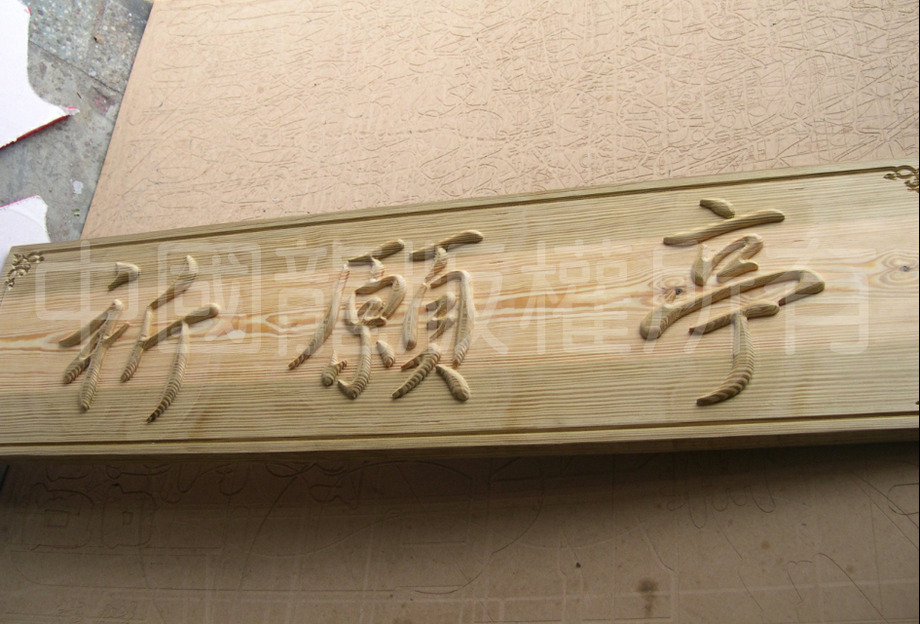 祈願亭
中國龍版權所有